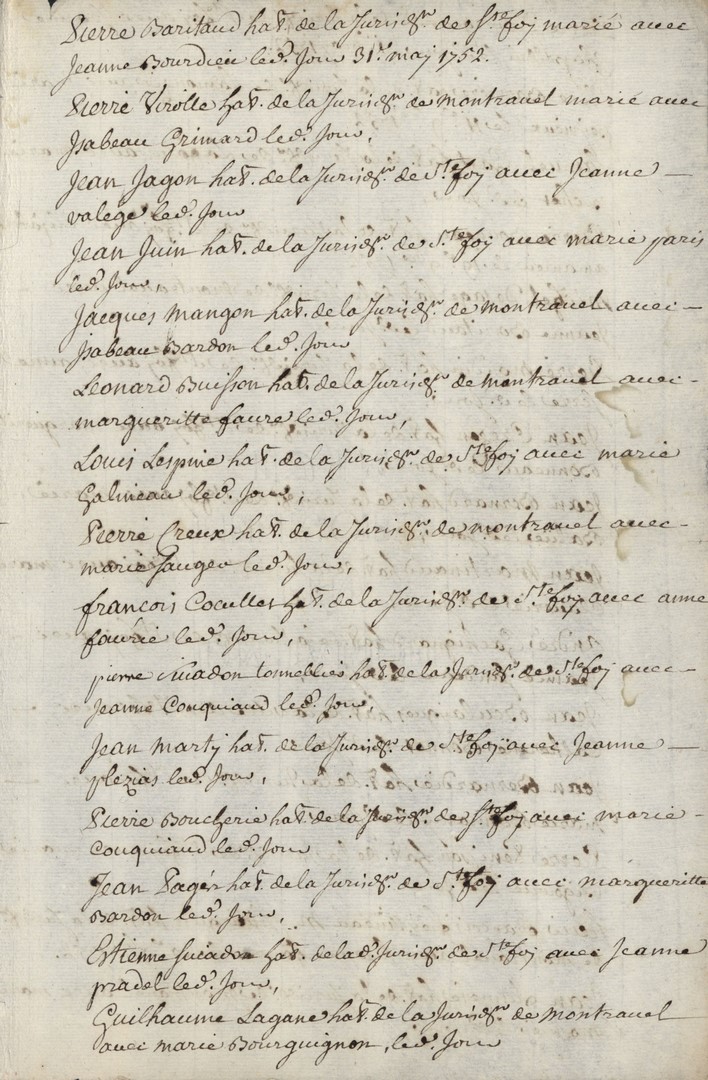 Pierre Baritaud hat. de la Jurisd.on de Ste foy marié avec
Jeanne Bourdieu led. Jour 31e. may 1752.
Pierre Virolle hat. de la Jurisd.on de montravel marié avec
Isabeau Grimard led. Jour,
Jean Jagon hat. de la Jurisd.on de Ste foy avec Jeanne —
valege led. Jour
Jean Juin hat. de la Jurisd.on de Ste foy avec marie paris
led. Jour,
Jacques mangon hat. de la Jurisd.on de montravel avec —
Isabeau Bardon led. Jour
Leonard Buisson hat. de la Jurisd.on de montravel avec -
margueritte faure led. Jour,
Louis Lespine hat. de la Jurisd.on de Ste foy avec marie
Galineau led. Jour,
Pierre Creux hat. de la Jurisd.on de montravel avec -
marie Jauger led. Jour,
françois Coculles hat. de la Jurisd.on de Ste foy avec anne
faurie led. Jour,
pierre tonnellies hat. de la Jurisd.on de Ste foy avec —
Jeanne Conquiaud led. Jour,
Jean marty hat. de la Jurisd.on de Ste foy avec Jeanne —
plezias led. Jour,
Pierre Boucherie hat. de la Jurisd.on de Ste foy avec marie -
Conquiaud led. Jour
Jean Pagés hat. de la Jurisd.on de Ste foy avec margueritte
Bardon led. Jour,
Estienne hat. de lad. Jurisd.on de Ste foy avec Jeanne
pradel led. Jour,
Guilhaume Lagane hat. de la Jurisd.on de montravel
avec marie Bourguignon, led. Jour